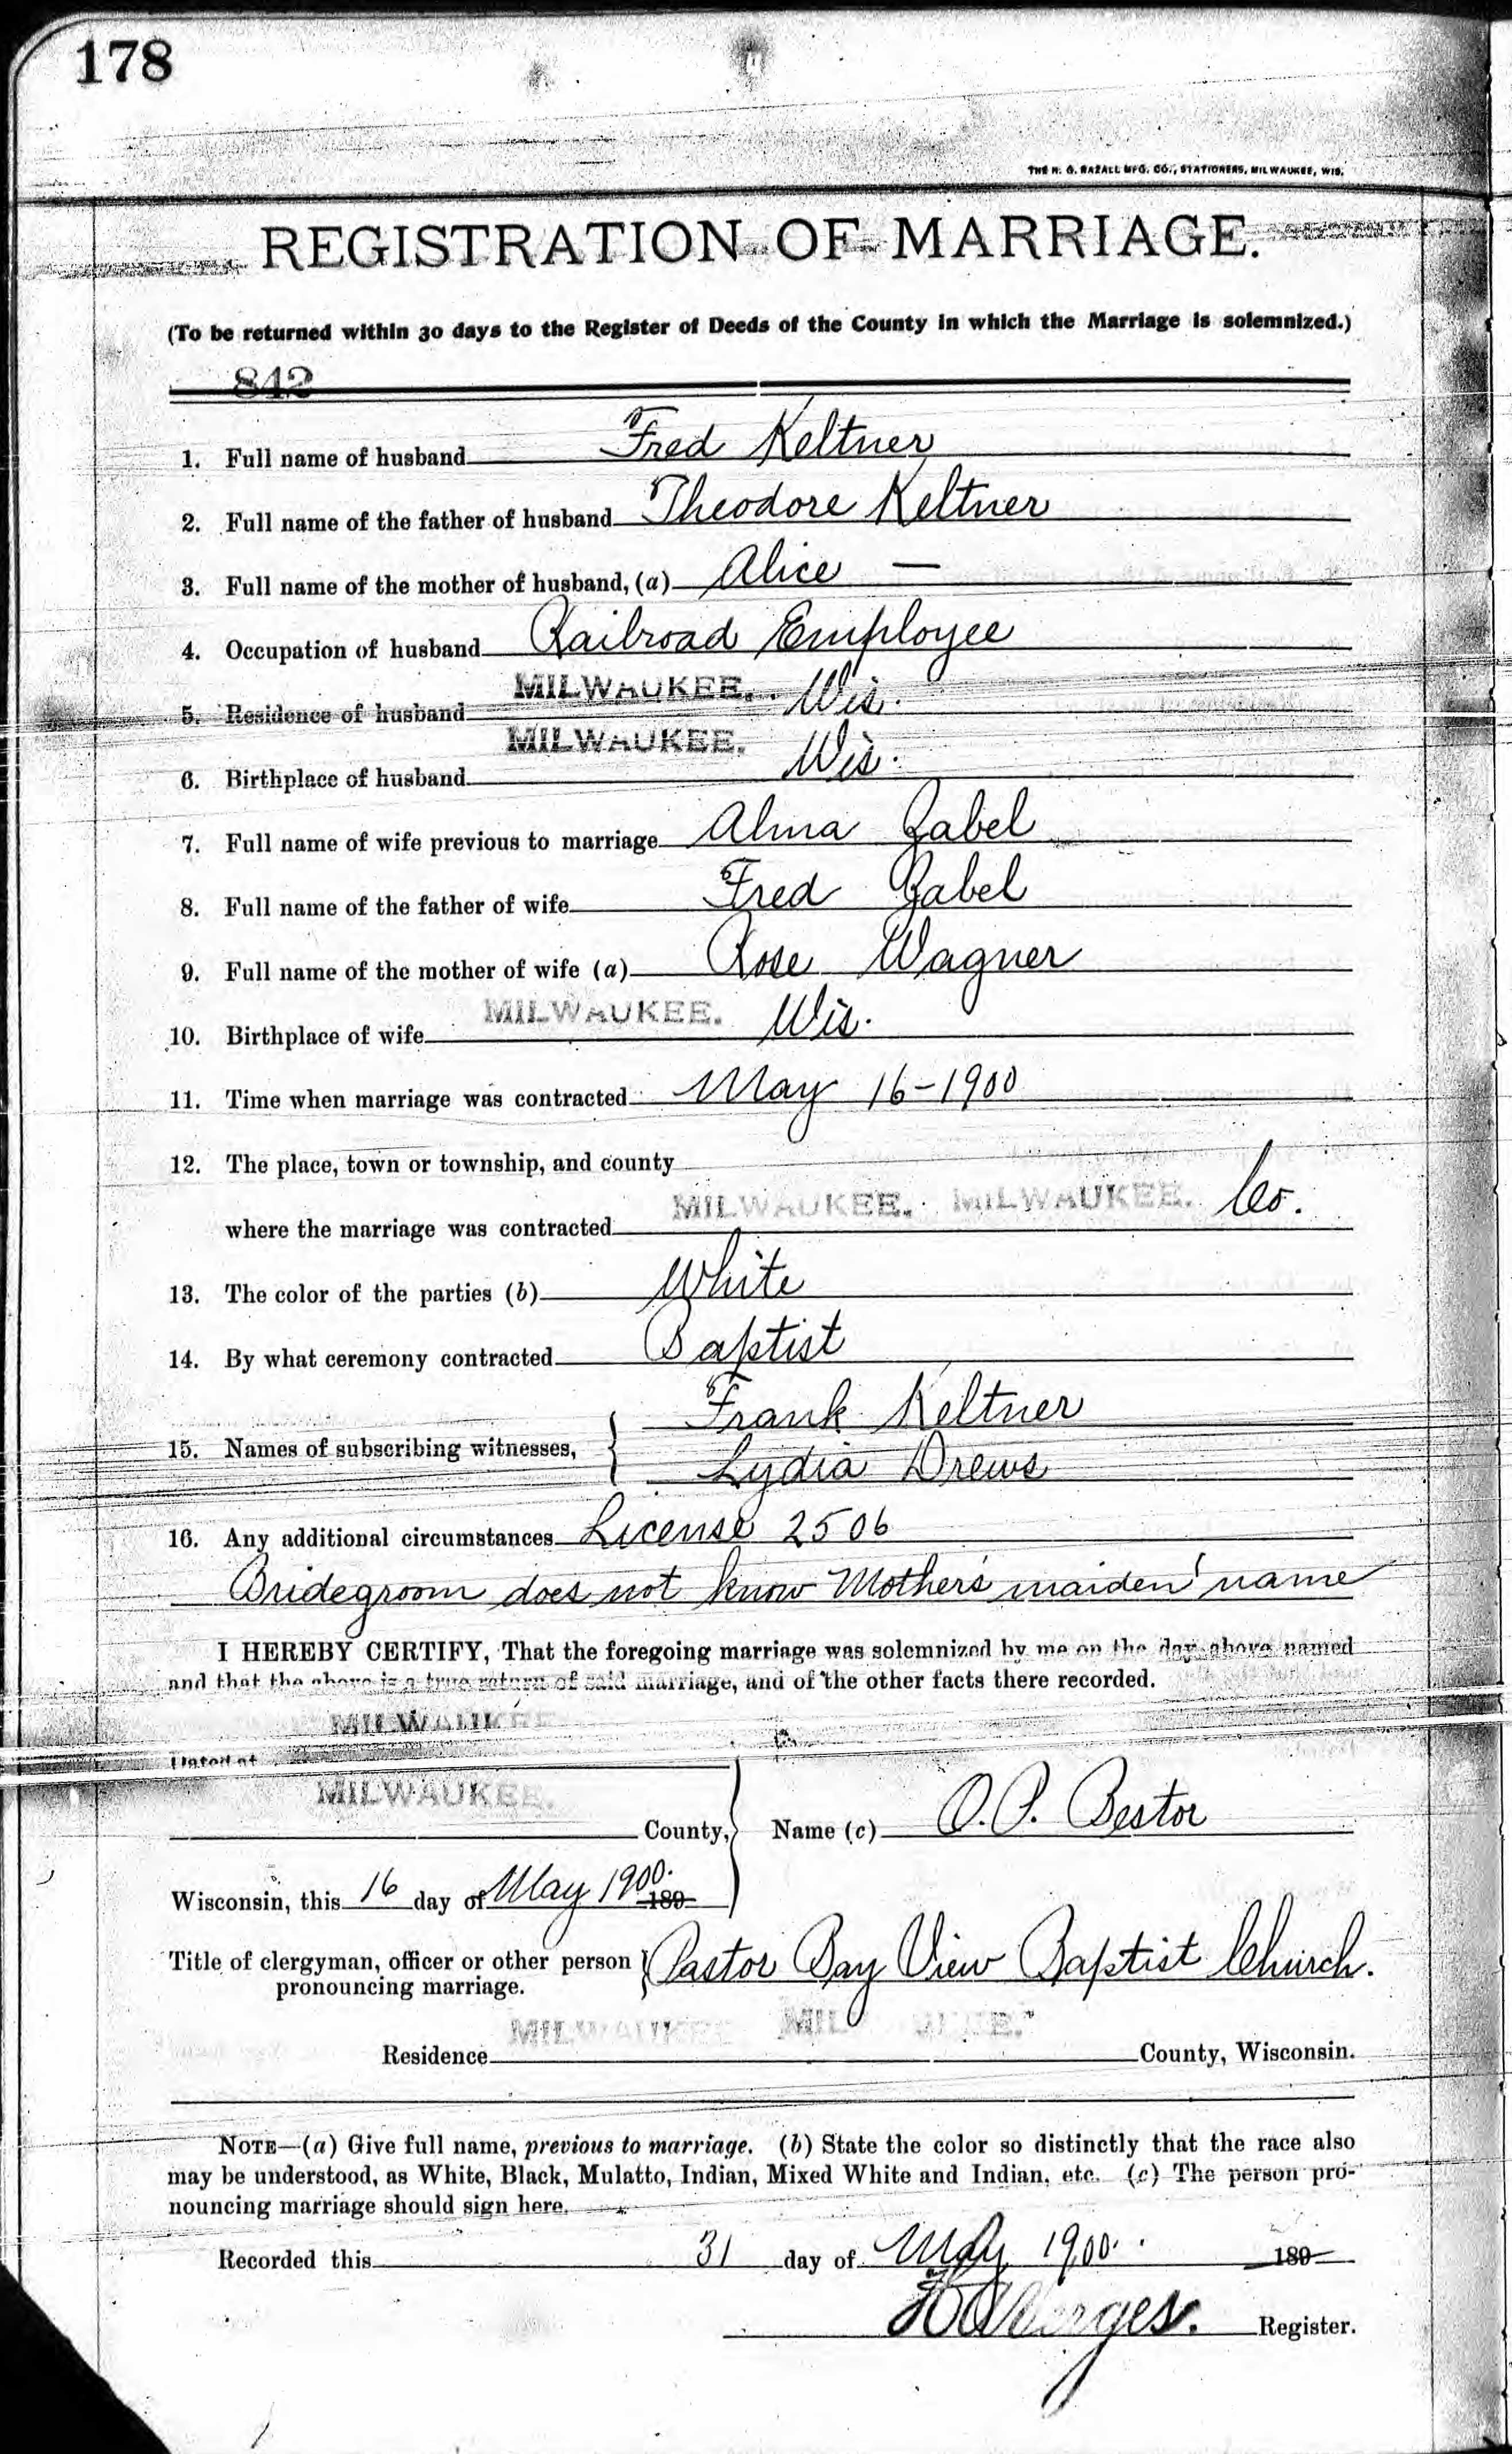 178
THE H. G. RAZALL MFG. CO., STATIONERS, MILWAUKEE, WIS.
REGISTRATION OF MARRIAGE.
(To be returned within 30 days to the Register of Deeds of the County in which the Marriage is solemnized.)
842
1. Full name of husband Fred Keltner
2. Full name of the father of husband Theodore Keltner
3. Full name of the mother of husband, (a) Alice —
4. Occupation of husband Railroad Employee
5. Residence of husband MILWAUKEE. Wis.
6. Birthplace of husband MILWAUKEE. Wis.
7. Full name of wife previous to marriage Alma Zabel
8. Full name of the father of wife Fred Zabel
9. Full name of the mother of wife (a) Rose Wagner
10. Birthplace of wife MILWAUKEE. Wis.
11. Time when marriage was contracted May 16-1900
12. The place, town or township, and county
where the marriage was contracted MILWAUKEE. MILWAUKEE. Co.
13. The color of the parties (b) White
14. By what ceremony contracted Baptist
Frank Keltner
15. Names of subscribing witnesses,
Lydia Drews
16. Any additional circumstances License 2506
Bridegroom does not know Mother's maiden name
I HEREBY CERTIFY, That the foregoing marriage was solemnized by me on the day above named
and that the above is a true return of said marriage, and of the other facts there recorded.
Dated at MILWAUKEE
MILWAUKEE. County, Name (c) O. P. Bestor
Wisconsin, this 16 day of May 1900. 189
Title of clergyman, officer or other person Pastor Bay View Baptist Church.
pronouncing marriage.
Residence MILWAUKEE MILWAUKEE. County, Wisconsin.
NOTE—(a) Give full name, previous to marriage. (b) State the color so distinctly that the race also
may be understood, as White, Black, Mulatto, Indian, Mixed White and Indian, etc. (c) The person pro-
nouncing marriage should sign here.
Recorded this 31 day of May 1900. 189
Register.